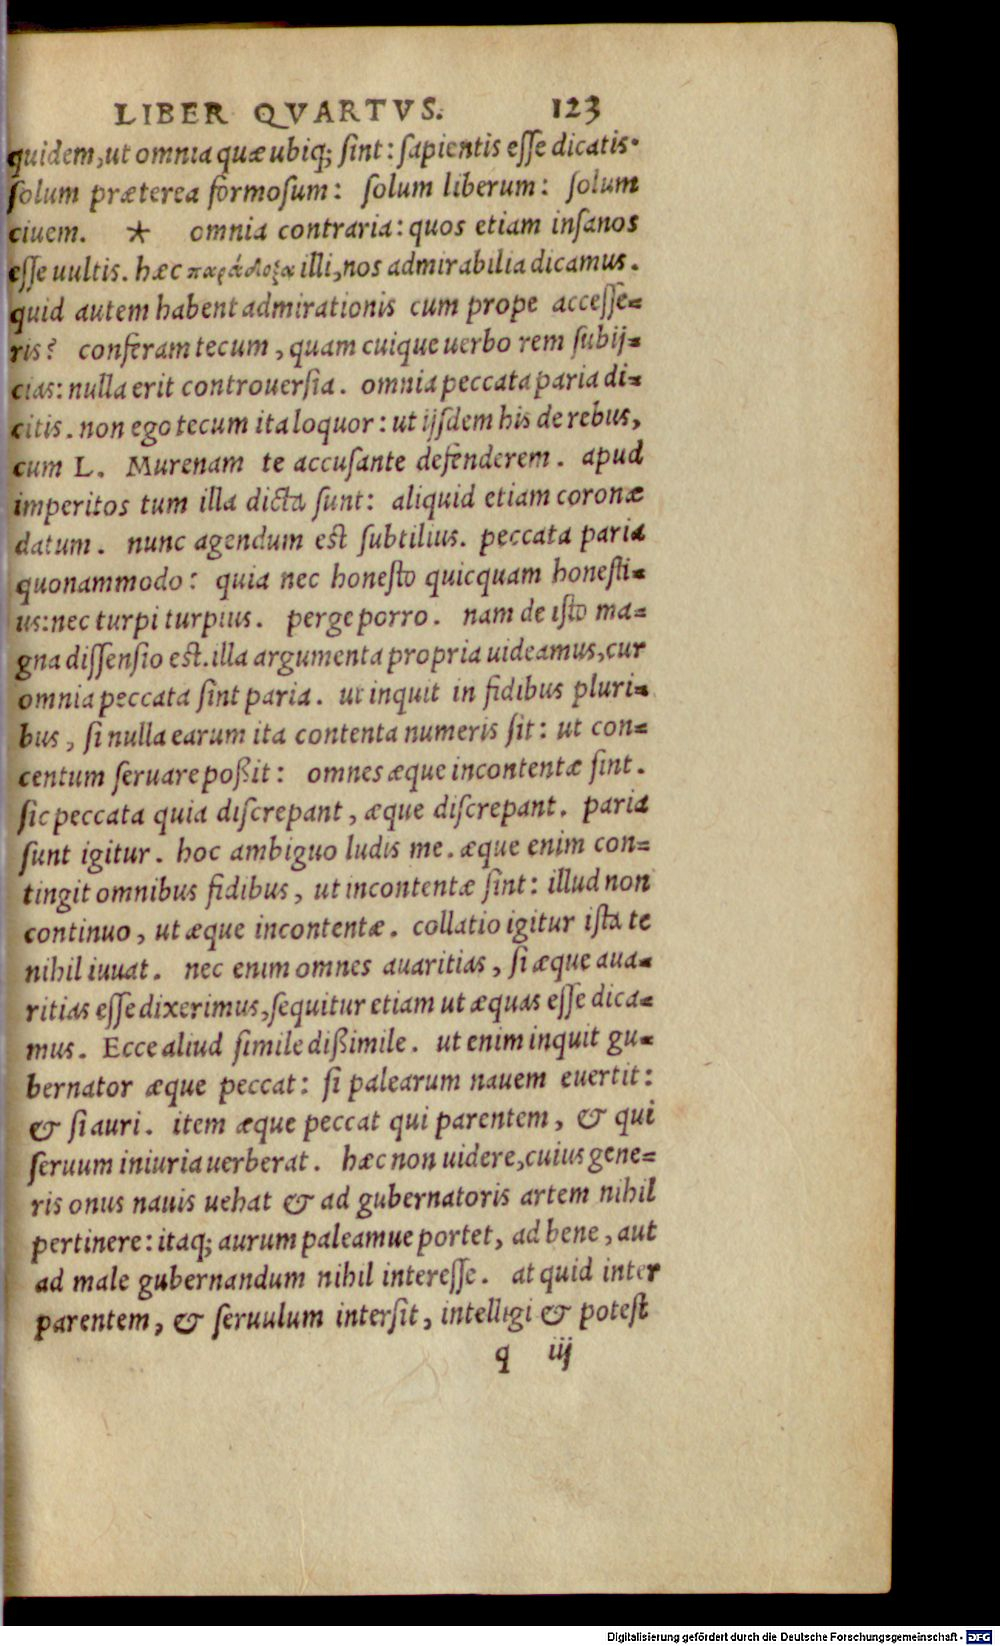 LIBER QVARTVS. 123
quidem, ut omnia quæ ubiq; ſint: ſapientis eſſe dicatis.
ſolum præterea formoſum: ſolum liberum: ſolum
ciuem. * omnia contraria: quos etiam inſanos
eſſe uultis. hæc παράδοξα illi, nos admirabilia dicamus.
quid autem habent admirationis cum prope acceſſe=
ris? conferam tecum, quam cuique uerbo rem ſubij=
cias: nulla erit controuerſia. omnia peccata paria di=
citis. non ego tecum ita loquor: ut ijſdem his de rebus,
cum L. Murenam te accuſante defenderem. apud
imperitos tum illa dicta ſunt: aliquid etiam coronæ
datum. nunc agendum eſt ſubtilius. peccata paria
quonammodo: quia nec honeſto quicquam honeſti=
us: nec turpi turpius. perge porro. nam de iſto ma=
gna diſſenſio eſt. illa argumenta propria uideamus, cur
omnia peccata ſint paria. ut inquit in fidibus pluri=
bus, ſi nulla earum ita contenta numeris ſit: ut con=
centum ſeruare poßit: omnes æque incontentæ ſint.
ſic peccata quia diſcrepant, æque diſcrepant. paria
ſunt igitur. hoc ambiguo ludis me. æque enim con=
tingit omnibus fidibus, ut incontentæ ſint: illud non
continuo, ut æque incontentæ. collatio igitur iſta te
nihil iuuat. nec enim omnes auaritias, ſi æque aua=
ritias eſſe dixerimus, ſequitur etiam ut æquas eſſe dica=
mus. Ecce aliud ſimile dißimile. ut enim inquit gu=
bernator æque peccat: ſi palearum nauem euertit:
& ſi auri. item æque peccat qui parentem, & qui
ſeruum iniuria uerberat. hæc non uidere, cuius gene=
ris onus nauis uehat & ad gubernatoris artem nihil
pertinere: itaq; aurum paleamue portet, ad bene, aut
ad male gubernandum nihil intereſſe. at quid inter
parentem, & ſeruulum interſit, intelligi & poteſt
q iij
Digitalisierung gefördert durch die Deutsche Forschungsgemeinschaft - DFG